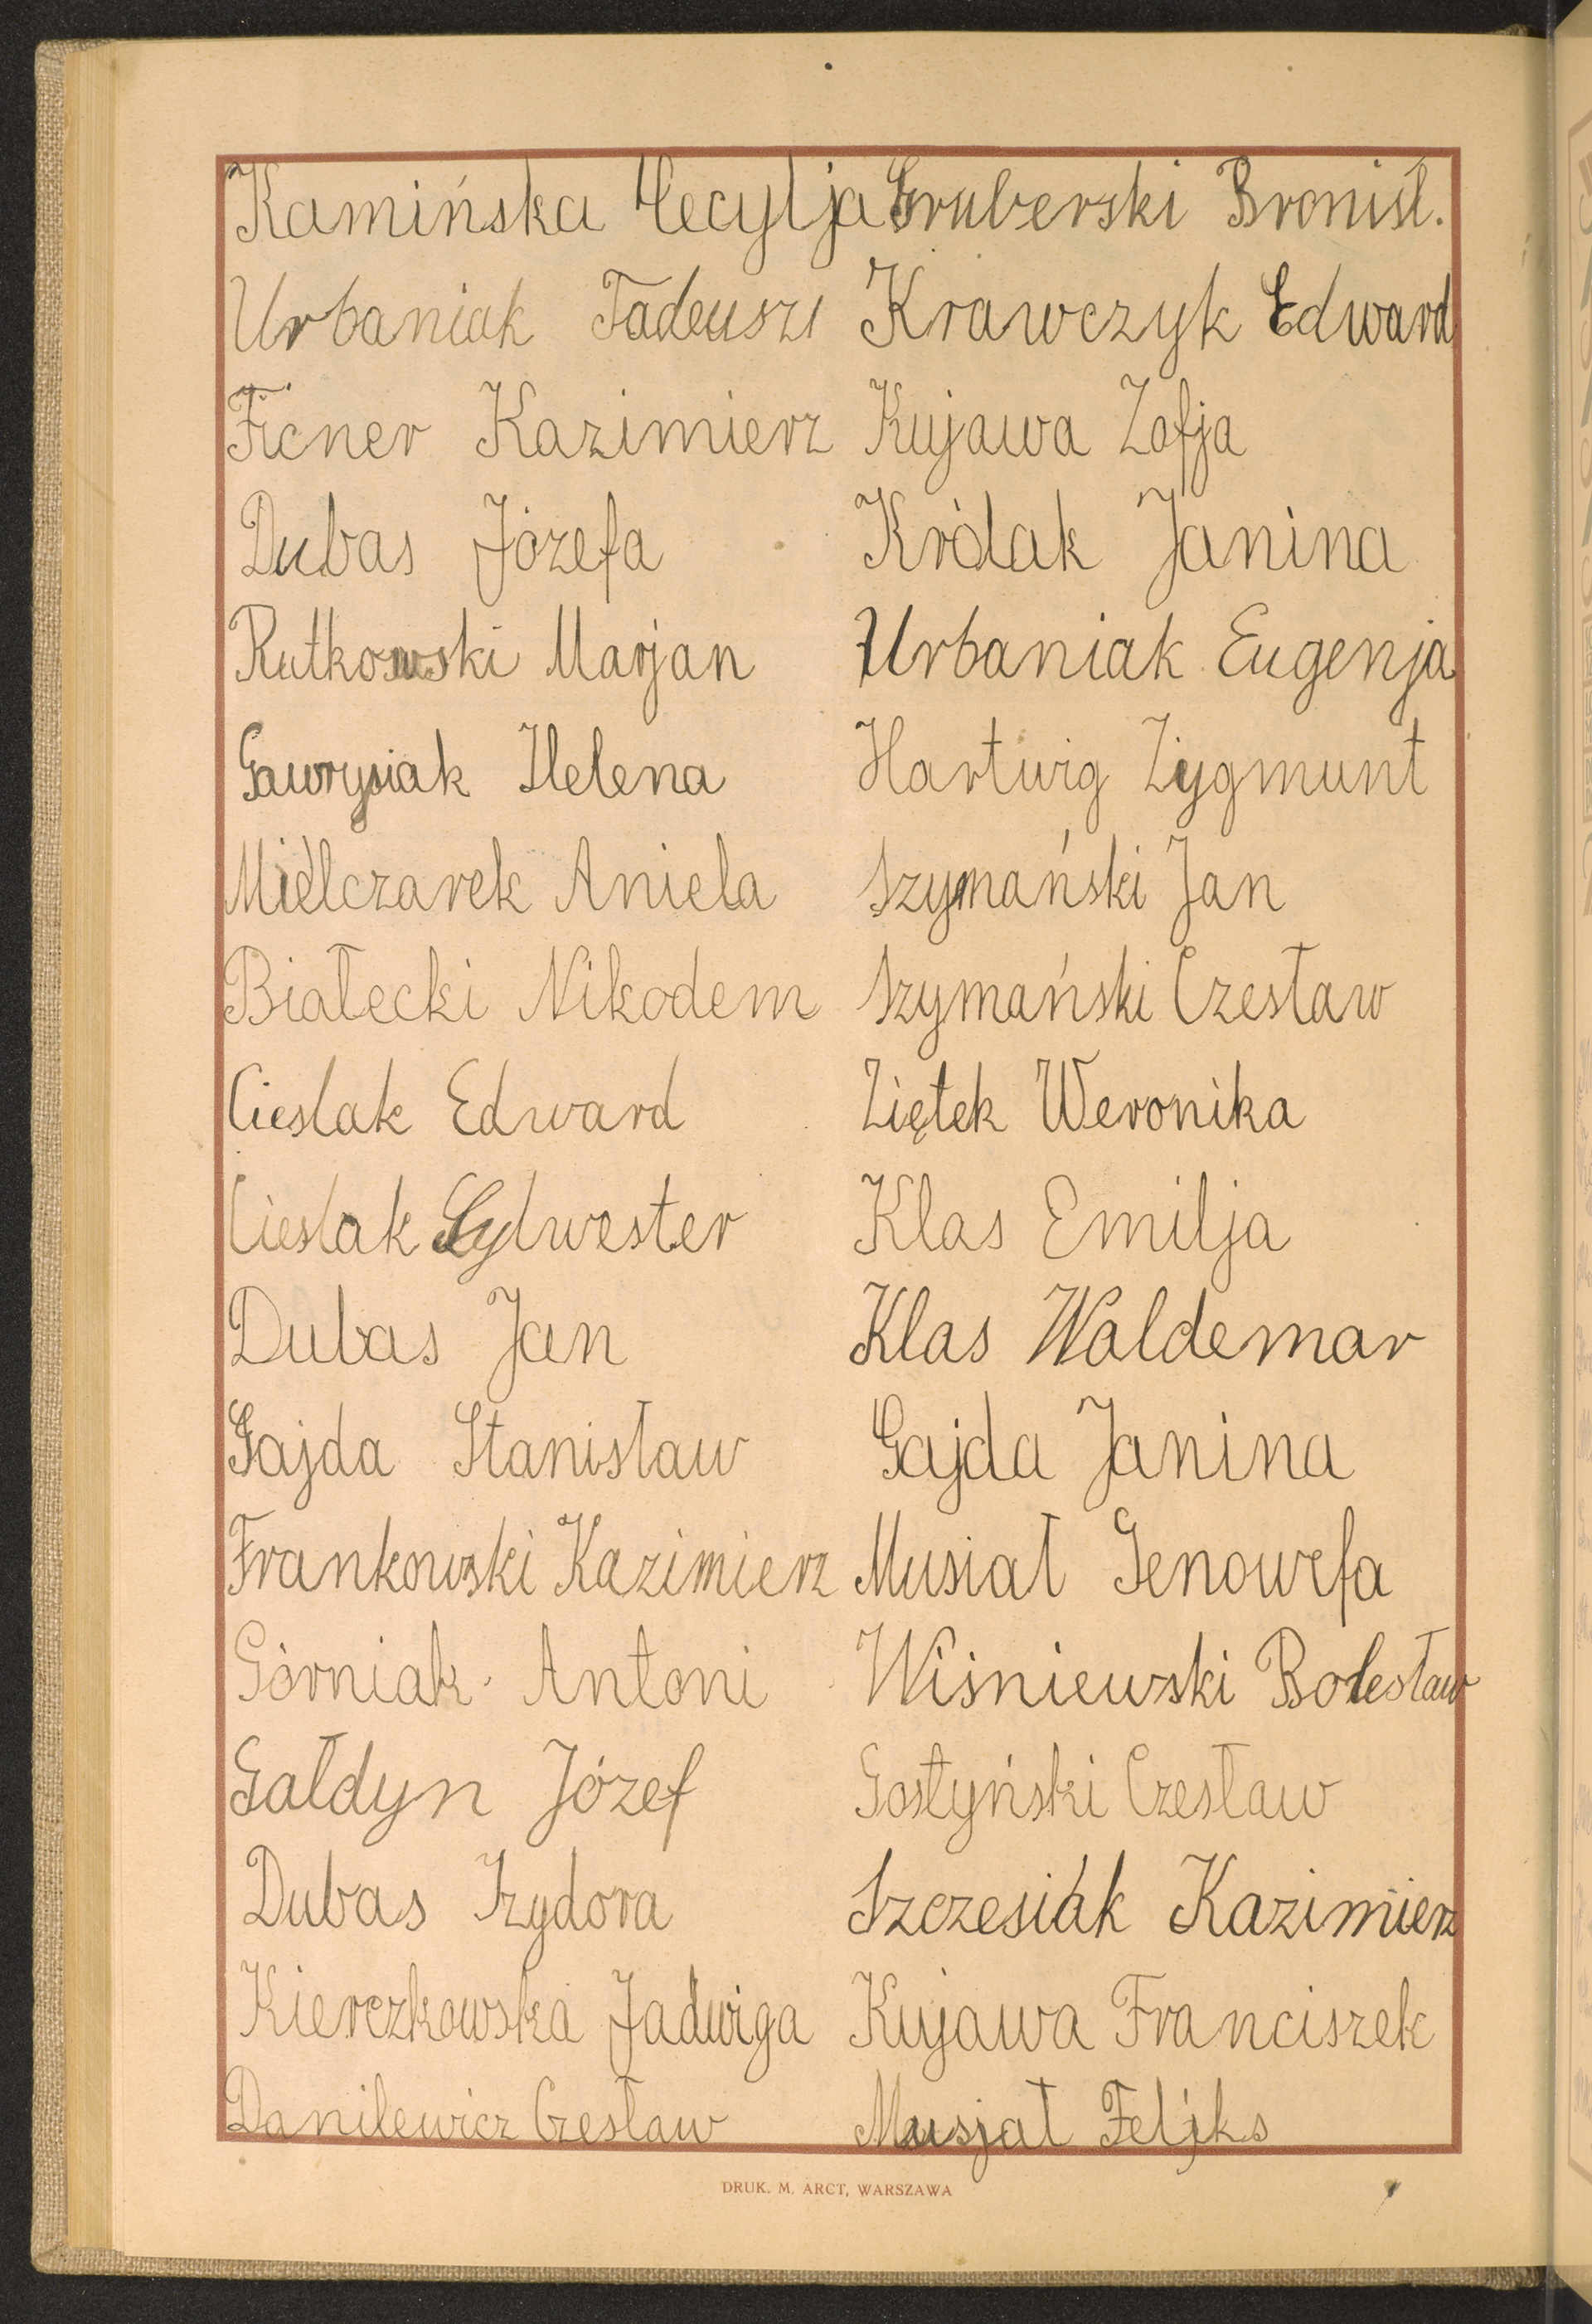 Kamińska Cecylja
Urbaniak Tadeusz
Ficner Kazimierz
Dubas Józefa
Rutkowski Marjan
Gawrysiak Helena
Mielczarek Aniela
Białecki Nikodem
Cieslak Edward
Cieslak Sylwester
Dubas Jan
Gajda Stanisław
Frankowski Kazimierz
Górniak Antoni
Gałdyn Józef
Dubas Izydora
Kierczkowska Jadwiga
Danilewicz Czesław
Gruberski Bronisł.
Krawczyk Edward
Kujawa Zofja
Królak Janina
Urbaniak Eugenja
Hartwig Zygmunt
Szymański Jan
Szymański Czesław
Ziętek Weronika
Klas Emilja
Klas Waldemar
Gajda Janina
Musiał Genowefa
Wiśniewski Bolesław
Gostyński Czesław
Szczesiak Kazimierz
Kujawa Franciszek
Musjał Feljks
DRUK. M. ARCT, WARSZAWA